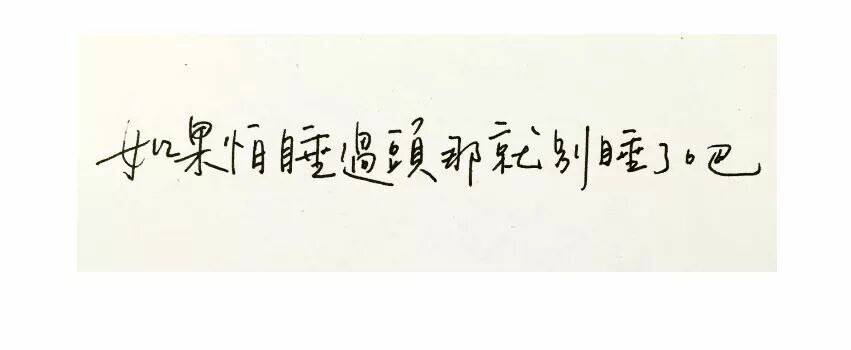 如果怕睡過頭那就別睡了吧